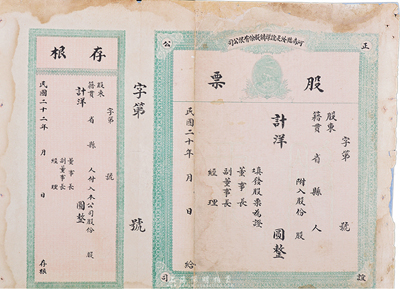 公 正
司 證
股票
股東 字第 號
籍貫 省 縣 人
附入股份 股
計洋 圓整
填發股票為證
董事長
副董事長
經理
民國二十年 月 日 給
字第 號
存根
字第 號
股東
籍貫 省 縣 人付入本公司股份 股
計洋 圓整
董事長
副董事長
經理
民國二十二年 月 日
存根